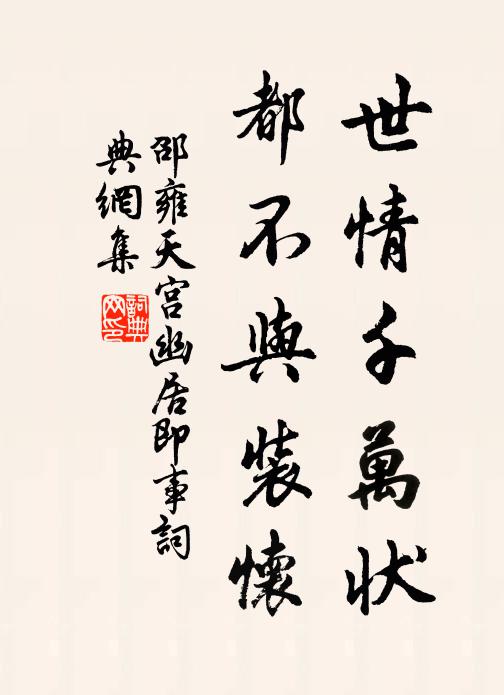 世情千萬状
都不與裝懷
邵雍天宮幽居即事詞
典網集
詞典网印